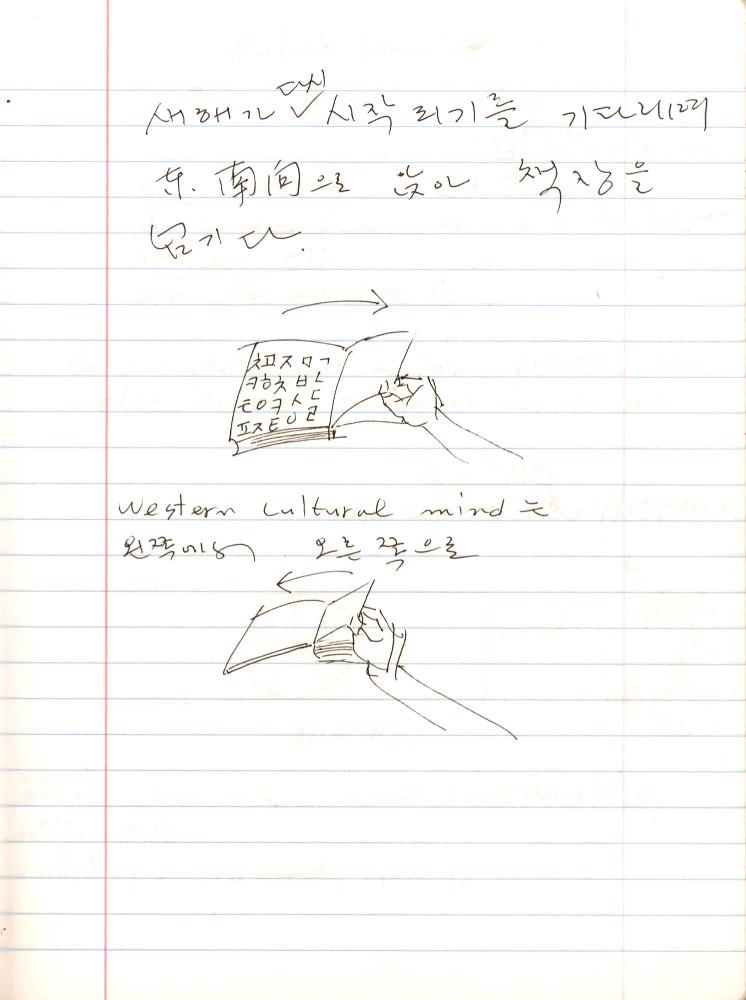 새해가 다시 시작 되기를 기다리며
东. 南向으로 앉아 책장을
넘기다.
ㅊㅍㅈㅁㄱ
ㅋㅎㅊㅂㄴ
ㅌㅇㅋㅅㄷ
ㅍㅈㅌㅇㄹ
western cultural mind 는
왼쪽에서 오른 쪽으로